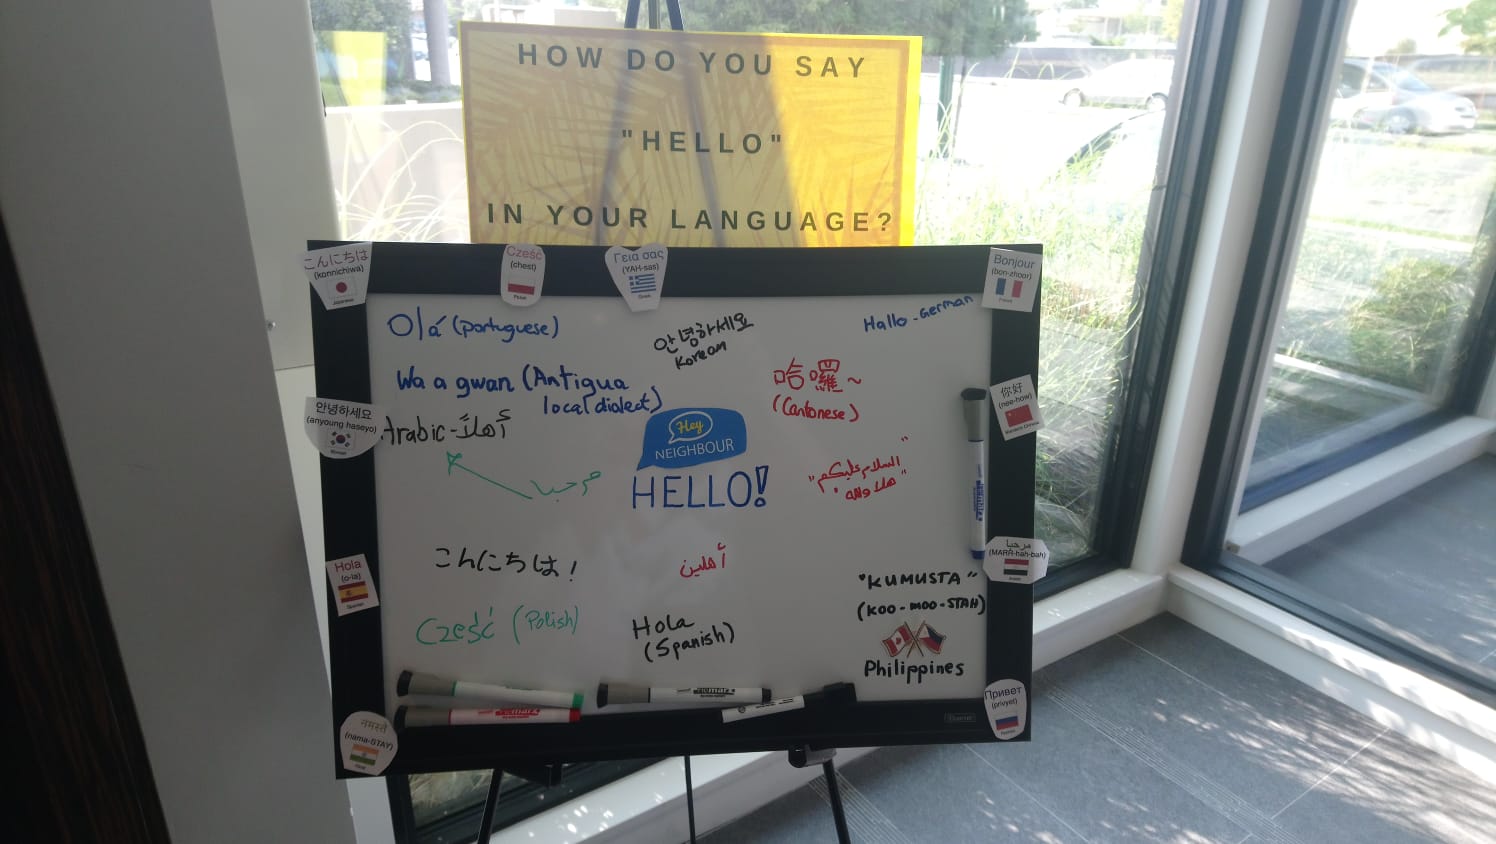 HOW DO YOU SAY
"HELLO"
IN YOUR LANGUAGE?
こんにちは
(konnichiwa)
Japanese
Cześć
(chest)
Polish
Γεια σας
(YAH-sas)
Greek
Bonjour
(bon-zhoor)
French
Olá (portuguese)
안녕하세요
Korean
Hallo - German
Wa a gwan (Antigua
local dialect)
哈囉~
(Cantonese)
你好
(nee-how)
Mandarin Chinese
안녕하세요
(anyoung haseyo)
Korean
Arabic - أهلاً
Hey
NEIGHBOUR
HELLO!
مرحبا
"السلام عليكم"
"هلا والله"
こんにちは!
أهلين
مرحبا
(MARR-hah-bah)
Arabic
Hola
(o-la)
Spanish
"KUMUSTA"
(KOO-moo-STAH)
Philippines
Cześć (Polish)
Hola
(Spanish)
नमस्ते
(nama-STAY)
Hindi
Привет
(privyet)
Russian
Quartet